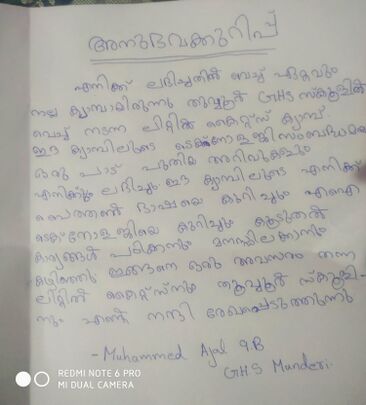 അനുഭവക്കുറിപ്പ്
എനിക്ക് ലഭിച്ചതിൽ വെച്ച് ഏറ്റവും
നല്ല ക്യാമ്പായിരുന്നു തൂവ്വൂർ GHS സ്കൂളിൽ
വെച്ച് നടന്ന ലിറ്റിൽ കൈറ്റ്സ് ക്യാമ്പ്.
ഈ ക്യാമ്പിലൂടെ ടെക്നോളജി സംബന്ധമായ
ഒരു പാട് പുതിയ അറിവുകളും
എനിക്കും ലഭിച്ചും ഈ ക്യാമ്പിലൂടെ എനിക്ക്
പൈത്തൺ ഭാഷയെ കുറിച്ചും എഐ
ടെക്നോളജിയെ കുറിച്ചും കൂടുതൽ
കാര്യങ്ങൾ പഠിക്കാനും മനസ്സിലക്കാനും
കഴിഞ്ഞു ഇങ്ങനെ ഒരു അവസരം തന്ന
ലിറ്റിൽ കൈറ്റ്സിനും തൂവ്വൂർ സ്കൂളി-
നും എൻ്റെ നന്ദി രേഖപ്പെടുത്തുന്നു
- Muhammed Ajal 9B
GHS Munderi.
REDMI NOTE 6 PRO
MI DUAL CAMERA